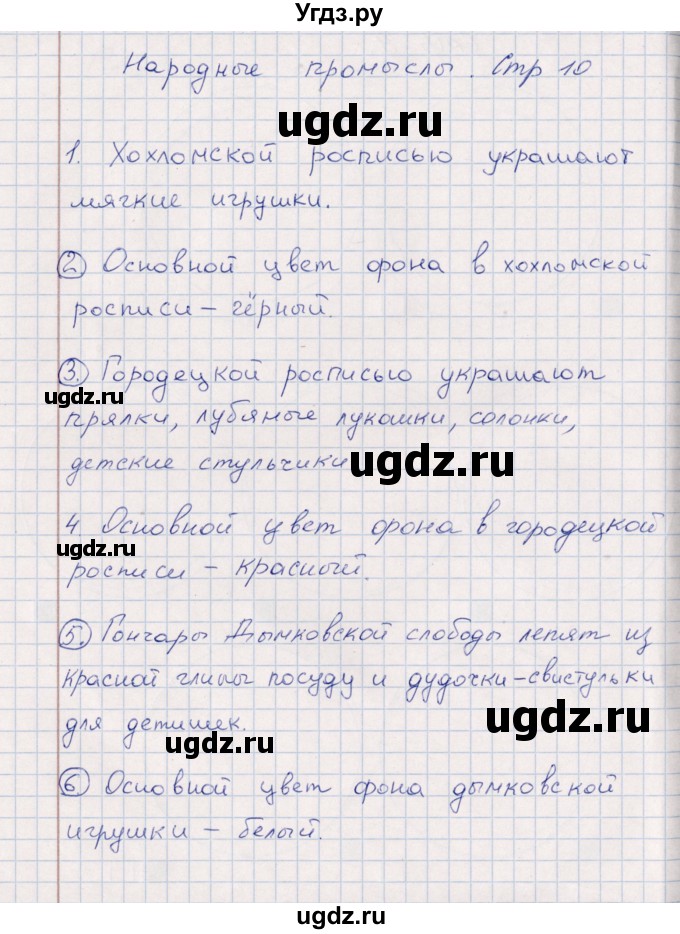 Угдз.ру
Народные промыслы. Стр 10
ugdz.ru
1. Хохломской росписью украшают
мягкие игрушки.
2 Основной цвет фона в хохломской
росписи – чёрный.
3. Городецкой росписью украшают
ugdz.ru
прялки, лубяные лукошки, солонки,
детские стульчики
ugdz.ru
4 Основной цвет фона в городецкой
ugdz.ru
росписи – красный.
5. Гончары Дымковской слободы лепят из
красной глины посуду и дудочки-свистульки
для детишек.
ugdz.ru
ugdz.ru
6 Основной цвет фона дымковской
игрушки – белый.
ugdz.ru